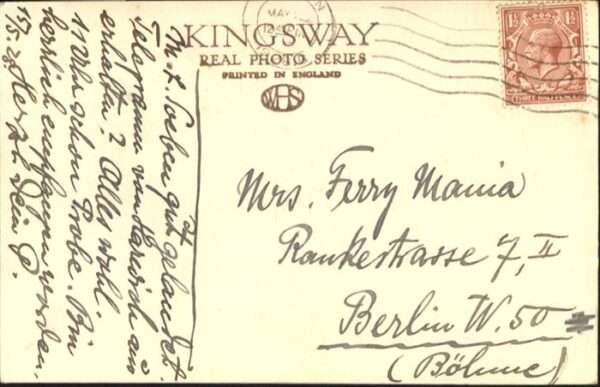 KINGSWAY
REAL PHOTO SERIES
PRINTED IN ENGLAND
WHS
MAY
1½ 1½
THREE HALFPENCE
M. L. Soeben gut gelandet.
Telegramm von ein
erhalten? Alles wohl.
11 Uhr schon Probe. Bin
herzlich empfangen worden.
15/5. 28 Herzl. Dein P.
Mrs. Ferry Mania
Rankestrasse 7, II
Berlin W. 50
(Böhme)